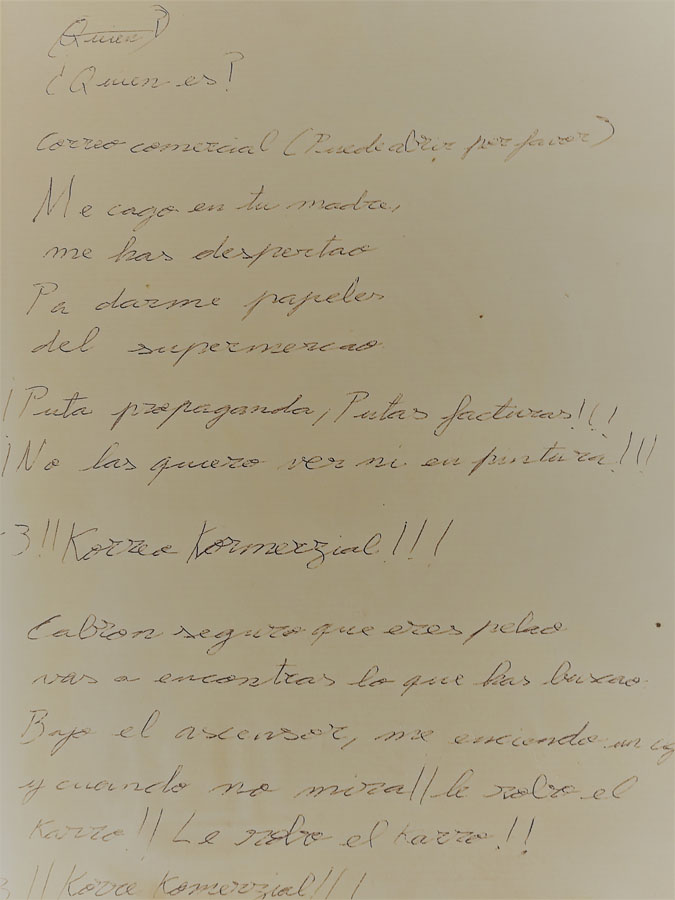 (Quien?
¿Quien es?
Correo comercial (Puede abrir por favor)
Me cago en tu madre,
me has despertao
Pa darme papeles
del supermercao
¡Puta propaganda, Putas facturas!!!
¡No las quiero ver ni en pintura!!!
-3!! Korreo Kormerzial!!!
Cabron seguro que eres pelao
vas a encontras lo que has buscao
Bajo el ascensor, me enciendo un
y cuando no mira!! le robo el
Karro!! Le robo el Karro!!
3!! Korre Komerzial!!!